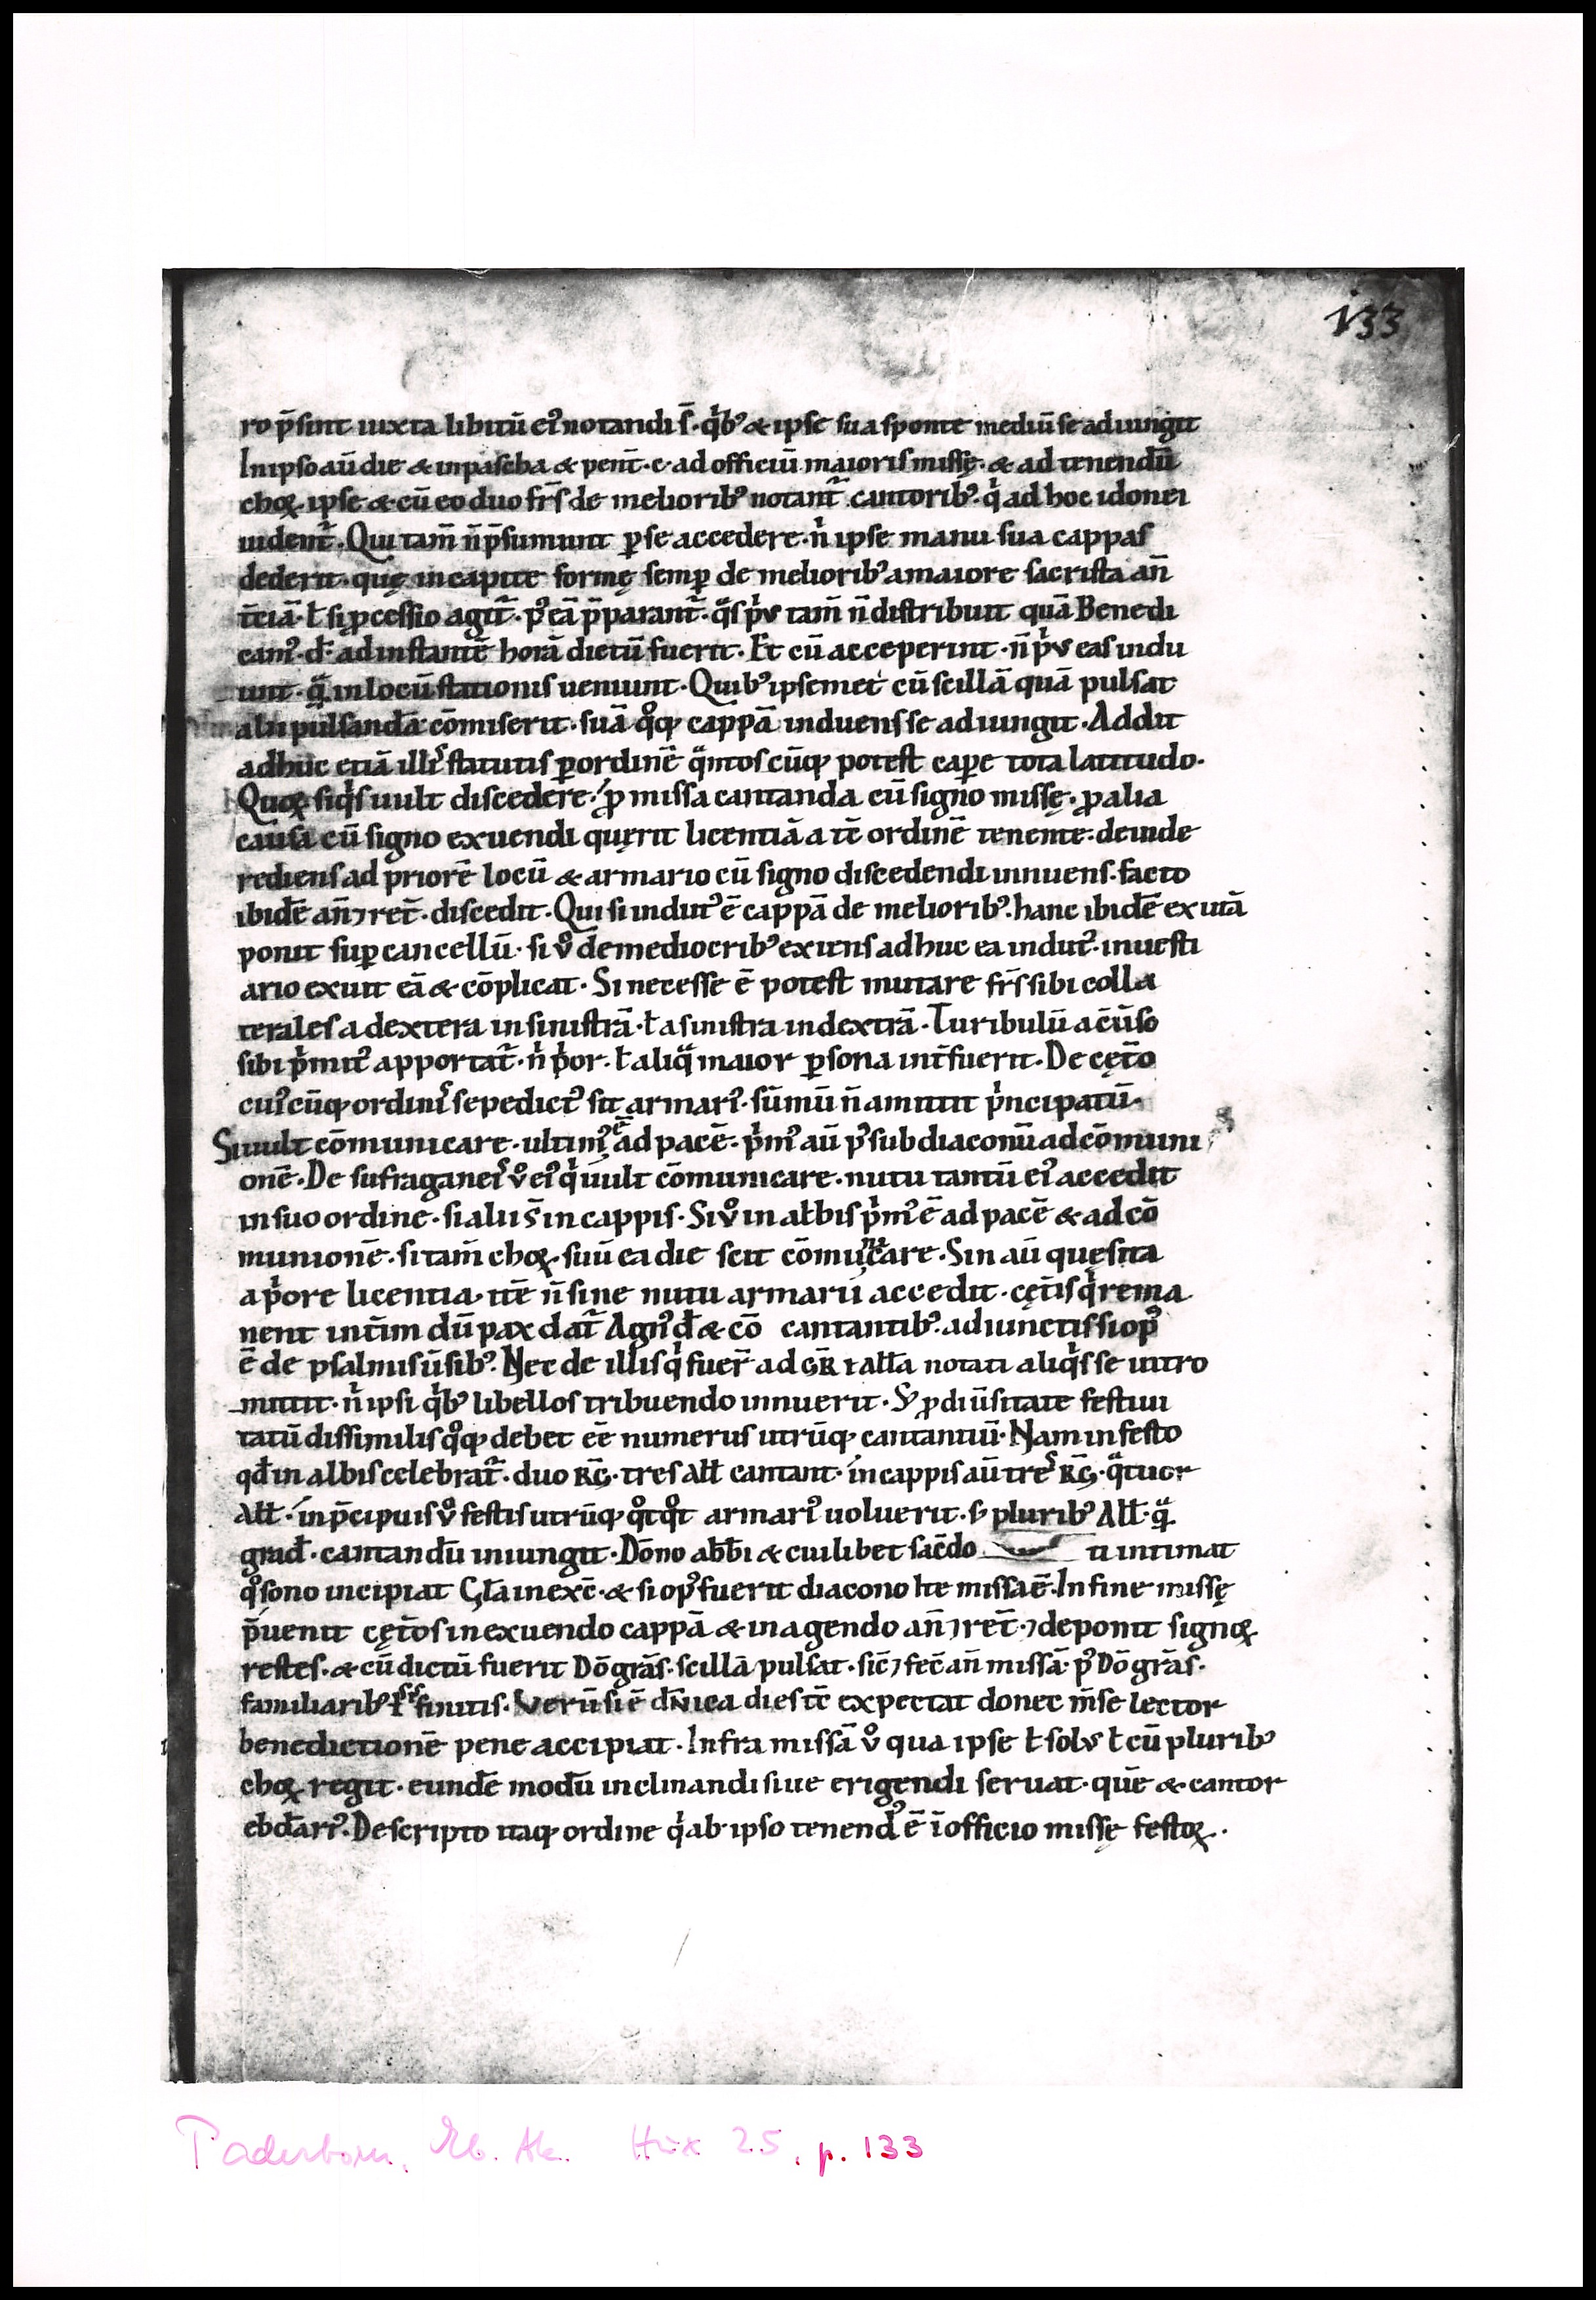 133
ro p̄sint iuxta libitū eiꝰ notandi s̄· qͥbꝰ & ipse sua sponte mediū se adiungit
In ipso aū die & in pascha & pent̄·c· ad officiū maioris missę·& ad tenendū
choꝝ ipse & cū eo duo fr̄s de melioribꝰ notant᷑ cantoribꝰ· qͥ ad hoc idonei
uident᷑· Qui tam̄ n̄ p̄sumunt ꝑ se accedere· nͥ ipse manu sua cappas
dederit· quę in capite formę semꝑ de melioribꝰ a maiore sacrista an̄
t̄ciā· ł si ꝓcessio agit᷑· pꝰ eā p̄parant᷑· qͣs pͥꝰ tam̄ n̄ distribuit quā Benedi
camꝰ·d̄· ad instantē horā dictū fuerit· Et cū acceperint· n̄ pͥꝰ eas indu
unt· qͣ in locū stationis ueniunt· Quibꝰ ipsemet cū scillā quā pulsat
alii pulsandā cōmiserit· suā qͦꝗ cappā induens se adiungit· Addit
adhuc etiā illis statutis ꝑ ordinē qͣntoscūꝗ potest caꝑe tota latitudo·
Quoꝝ siqͥs uult discedere· ꝓ missa cantanda cū signo missę· ꝓ alia
causa cū signo exuendi querit licentiā a tē ordinē tenente· deinde
rediens ad priorē locū & armario cū signo discedendi innuens· facto
ibidē an̄ ⁊ ret̄· discedit· Qui si indutꝰ ē cappā de melioribꝰ· hanc ibidē exutā
ponit suꝑ cancellū· si v̊ de mediocribꝰ exiens adhuc ea indutꝰ· in uesti
ario exuit eā & cōplicat· Si necesse ē potest mutare fr̄s sibi colla
terales a dextera in sinistrā· ł a sinistra in dextrā· Turibulū a cūso
sibi pͥmitꝰ apportat᷑· nͥ pͥor· ł aliqͣ maior ꝑsona int̄fuerit· De cęt̄o
cuiꝰcūꝗ ordinis sepedictꝰ sit armariꝰ· sūmū n̄ amittit pͥncipatū·
Si uult cōmunicare· ultimꝰ ē ad pacē· pͥmꝰ aū pꝰ subdiaconū ad cōmuni
onē· De sufraganeis v̊ eiꝰ qͥ uult cōmunicare· nutu tantū eiꝰ accedit
in suo ordine· si alii s̄ in cappis· Si v̊ in albis pͥmꝰ ē ad pacē & ad cō
munionē· si tam̄ choꝝ· suū ea die scit cōmunicare· Sin aū quęsita
a pͥore licentia· itē n̄ sine nutu armarii accedit· cęt̄is qͥ rema
nent int̄im dū pax dat᷑ Agnꝰ d̄ & cō cantantibꝰ· adiunctis si opꝰ
ē de psalmis ūsibꝰ· Nec de illis qͥ fuer̄ ad GR̄ ł Alła notati aliqͥs se intro
mittit· nͥ ipsi qͥbꝰ libellos tribuendo innuerit· S; ꝓ diūsitate festiui
tatū dissimilis qͦꝗ debet ēē numerus utrūꝗ cantantiū· Nam in festo
qđ in albis celebrat᷑· duo RG̅· tres Ałł cantant· in cappis aū tres RG̅· qͣtuor
Ałł· in p̄cipuis v̊ festis utrūꝗ qͦtqͦt armariꝰ uoluerit· s; pluribꝰ Ałł· qͣ
grad̄· cantandū iniungit· Dōno abb̄i & cuilibet sac̄do ti intimat
qͦ sono incipiat Gła in exc̄· & si opꝰ fuerit diacono Ite missa ē· In fine missę
p̄uenit cęt̄os in exuendo cappā & in agendo an̄ ⁊ ret̄· ⁊ deponit signoꝝ
restes· & cū dictū fuerit Dō grās· scillā pulsat· sic̄ ⁊ fec̄ an̄ missā· pꝰ Dō grās·
familiaribꝰ finitis· Verū si ē dn̄ica dies tē expectat donec m̄se lector
benedictionē pene accipiat· Infra missā v̊ qua ipse ł solꝰ ł cū pluribꝰ
choꝝ regit· eundē modū inclinandi siue erigendi seruat· quē & cantor
ebdariꝰ· Descripto itaꝗ ordine qͥ ab ipso tenendꝰ ē ī officio missę festoꝝ··
Paderborn, Eb. Ak. Hux 25, p. 133